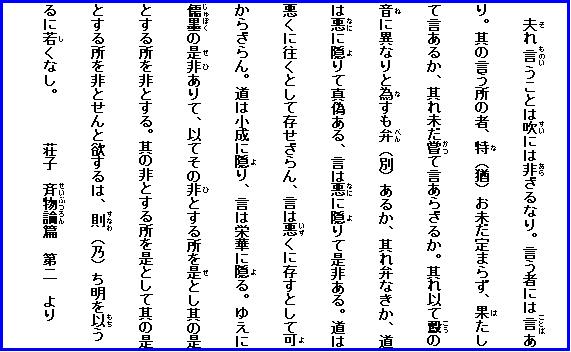 夫れ言うことは吹には非ざるなり。言う者には言あ
り。其の言う所の者、特（猶）お未だ定まらず、果たし
て言あるか、其れ未だ甞て言あらざるか。其れ以て鷇の
音に異なりと為すも弁（別）あるか、其れ弁なきか、道
は悪に隠りて真偽ある、言は悪に隠りて是非ある。道は
悪くに往くとして存せざらん、言は悪くに存すとして可
からざらん。道は小成に隠り、言は栄華に隠る。ゆえに
儒墨の是非ありて、以てその非とする所を是とし其の是
とする所を非とする。其の非とする所を是として其の是
とする所を非とせんと欲するは、則（乃）ち明を以う
るに若くなし。　　荘子　斉物論篇　第二　より